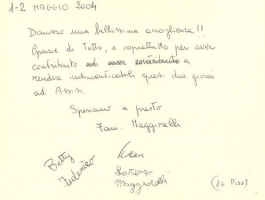 1-2 MAGGIO 2004
Davvero una bellissima accoglienza!!
Grazie di tutto, e soprattutto per aver
contribuito a
rendere indimenticabili questi due giorni
ad Assisi
Speriamo a presto
Fam. Maggiorelli
Betty
Federico
Lorenzo
Maggiorelli
(da Pisa)